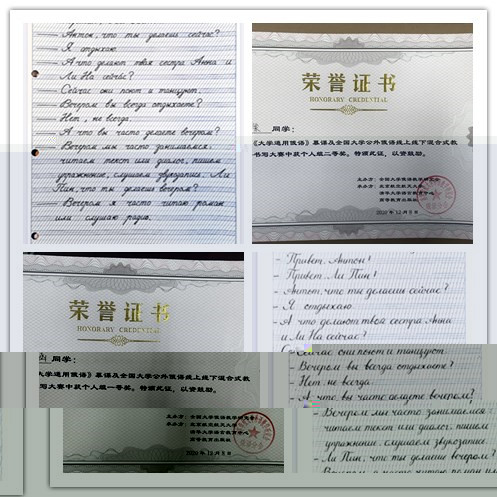 — Антон, что ты делаешь сейчас?
— Я отдыхаю
— А что делают твоя сестра Анна и
Ли На сейчас?
— Сейчас они поют и танцуют.
— Вечером вы всегда отдыхаете?
— Нет, не всегда.
— А что вы часто делаете вечером?
— Вечером мы часто занимаемся:
читаем текст или диалог, пишем
упражнение, слушаем звукозапись. Ли
Пин, что ты делаешь вечером?
— Вечером я часто читаю роман
или слушаю радио.
荣誉证书
HONORARY CREDENTIAL
同学：
《大学通用俄语》慕课及全国大学公外俄语线上线下混合式教
书写大赛中获个人组二等奖。特颁此证，以资鼓励。
2020 年 12 月
荣誉证书
HONORARY CREDENTIAL
同学：
大学通用俄语》慕课及全国大学公外俄语线上线下混合式教
写大赛中获个人组一等奖。特颁此证，以资鼓励。
2020 年 12 月
— Привет, Антон!
— Привет, Ли Пин!
— Антон, что ты делаешь сейчас?
— Я отдыхаю
— А что делают твоя сестра Анна
и Ли На сейчас?
Сейчас они поют и танцуют.
— Вечером вы всегда отдыхаете?
— Нет, не всегда.
— А что вы часто делаете вечером?
— Вечером мы часто занимаемся:
читаем текст или диалог, пишем
упражнение, слушаем звукозапись.
— Ли Пин, что ты делаешь вечером?